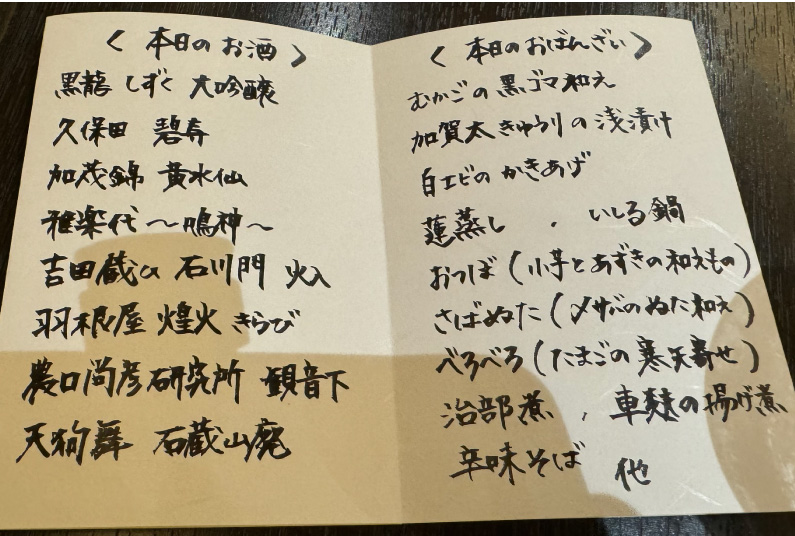 〈 本日のお酒 〉
黒龍 しずく 大吟醸
久保田 碧寿
加茂錦 黄水仙
雅楽代 〜鳴神〜
吉田蔵u 石川門 火入
羽根屋 煌火 きらび
農口尚彦研究所 観音下
天狗舞 石蔵山廃
〈 本日のおばんざい 〉
むかごの黒ゴマ和え
加賀太きゅうりの浅漬け
白エビのかきあげ
蓮蒸し ・ いしる鍋
おつぼ (小芋とあずきの和えもの)
さばぬた (〆サバのぬた和え)
べろべろ (たまごの寒天寄せ)
治部煮 、 車麩の揚げ煮
辛味そば 他